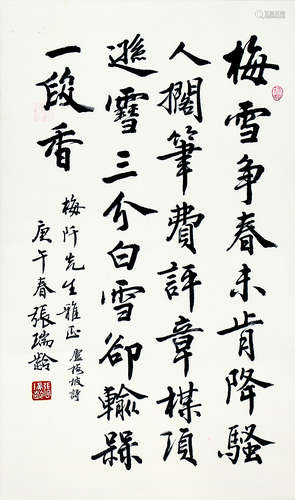 梅雪争春未肯降騷
人擱筆費評章楳須
遜雪三分白雪卻輸楳
一段香
梅阡先生雅正 盧梅坡詩
庚午春張瑞齡